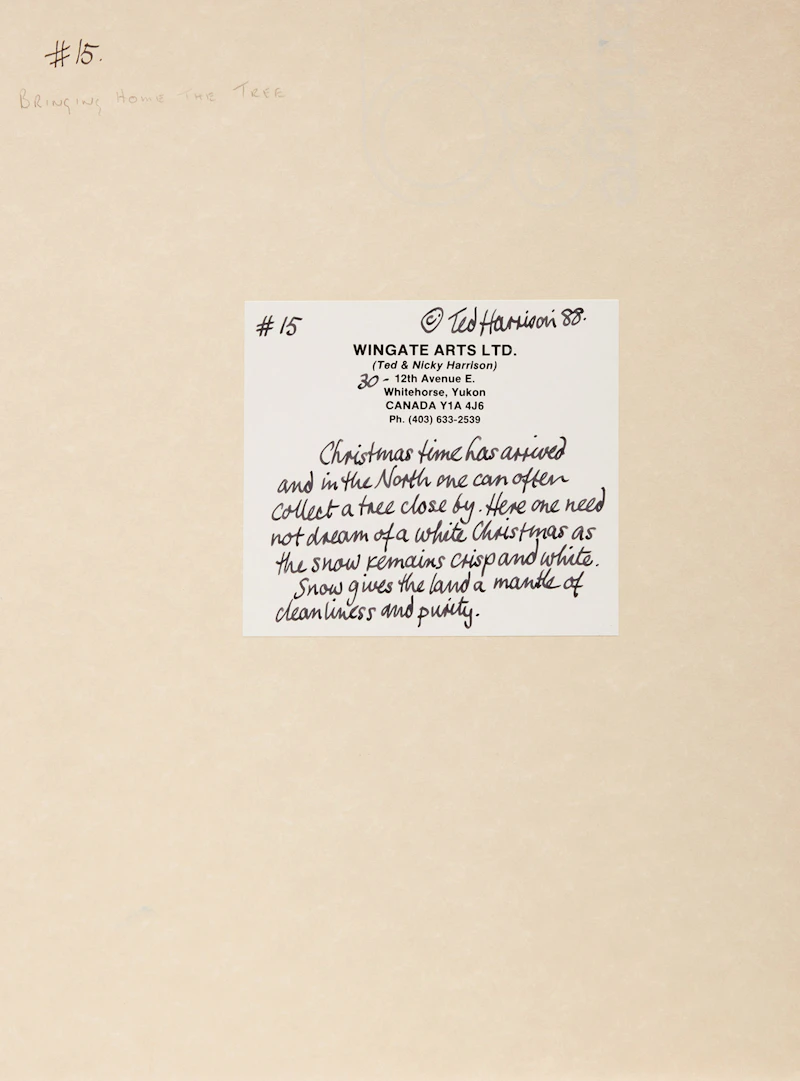 #15.
BRINGING HOME THE TREE
#15
© Ted Harrison 88.
WINGATE ARTS LTD.
(Ted & Nicky Harrison)
30 - 12th Avenue E.
Whitehorse, Yukon
CANADA Y1A 4J6
Ph. (403) 633-2539
Christmas time has arrived
and in the North one can often
collect a tree close by. Here one need
not dream of a white Christmas as
the snow remains crisp and white.
Snow gives the land a mantle of
cleanliness and purity.